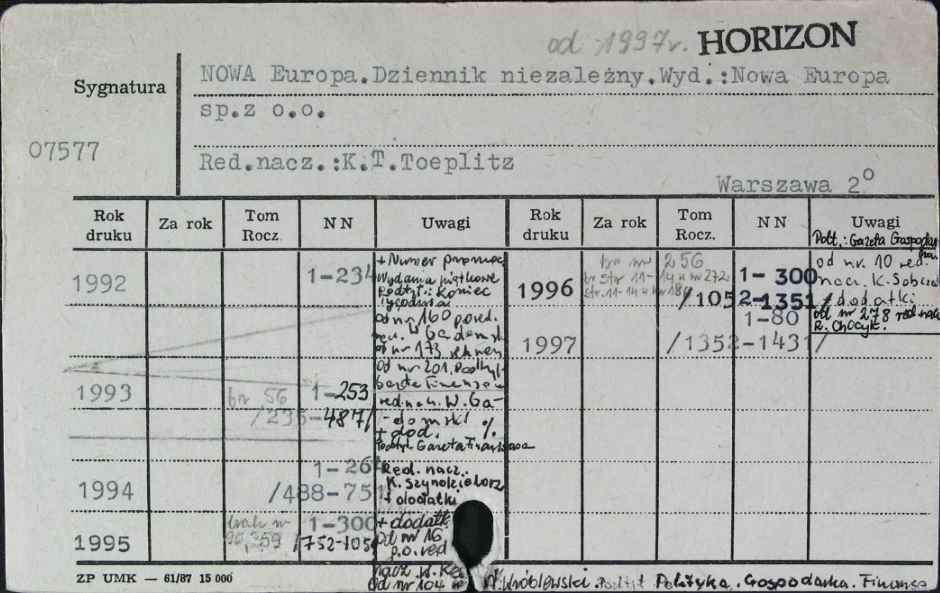 od 1997r. HORIZON
Sygnatura
NOWA Europa.Dziennik niezależny.Wyd.:Nowa Europa
sp.z o.o.
07577
Red.nacz.:K.T.Toeplitz
Warszawa 2°
Rok druku Za rok Tom Rocz. N N Uwagi Rok druku Za rok Tom Rocz. N N Uwagi
Podt.: Gazeta
1992 1-234
+ Numer
Wydania piątkowe
Podtyt.: Koniec
Tygodnia
od nr 160
od nr 173
Od nr 201.
1993 br 56 1-253
/235-487/
red. nacz. W. Ga-
domski
+ dod. %
Podtyt. Gazeta Finansowa
1994 1-264
/488-751
Red. nacz.
+ dodatki
1995 brak nr 1-300
/752-1051
+ dodatki
Od nr 16
p.o. red
nacz
Od nr 104
1996 nr 256 1-300
/1052-1351/
od nr. 10 red.
nacz. K.
+ dodatki
od nr 278 red. nacz.
1997 1-80
/1352-1431/
ZP UMK — 61/87 15 000
Wróblewski Polityka. Gospodarka. Finanse